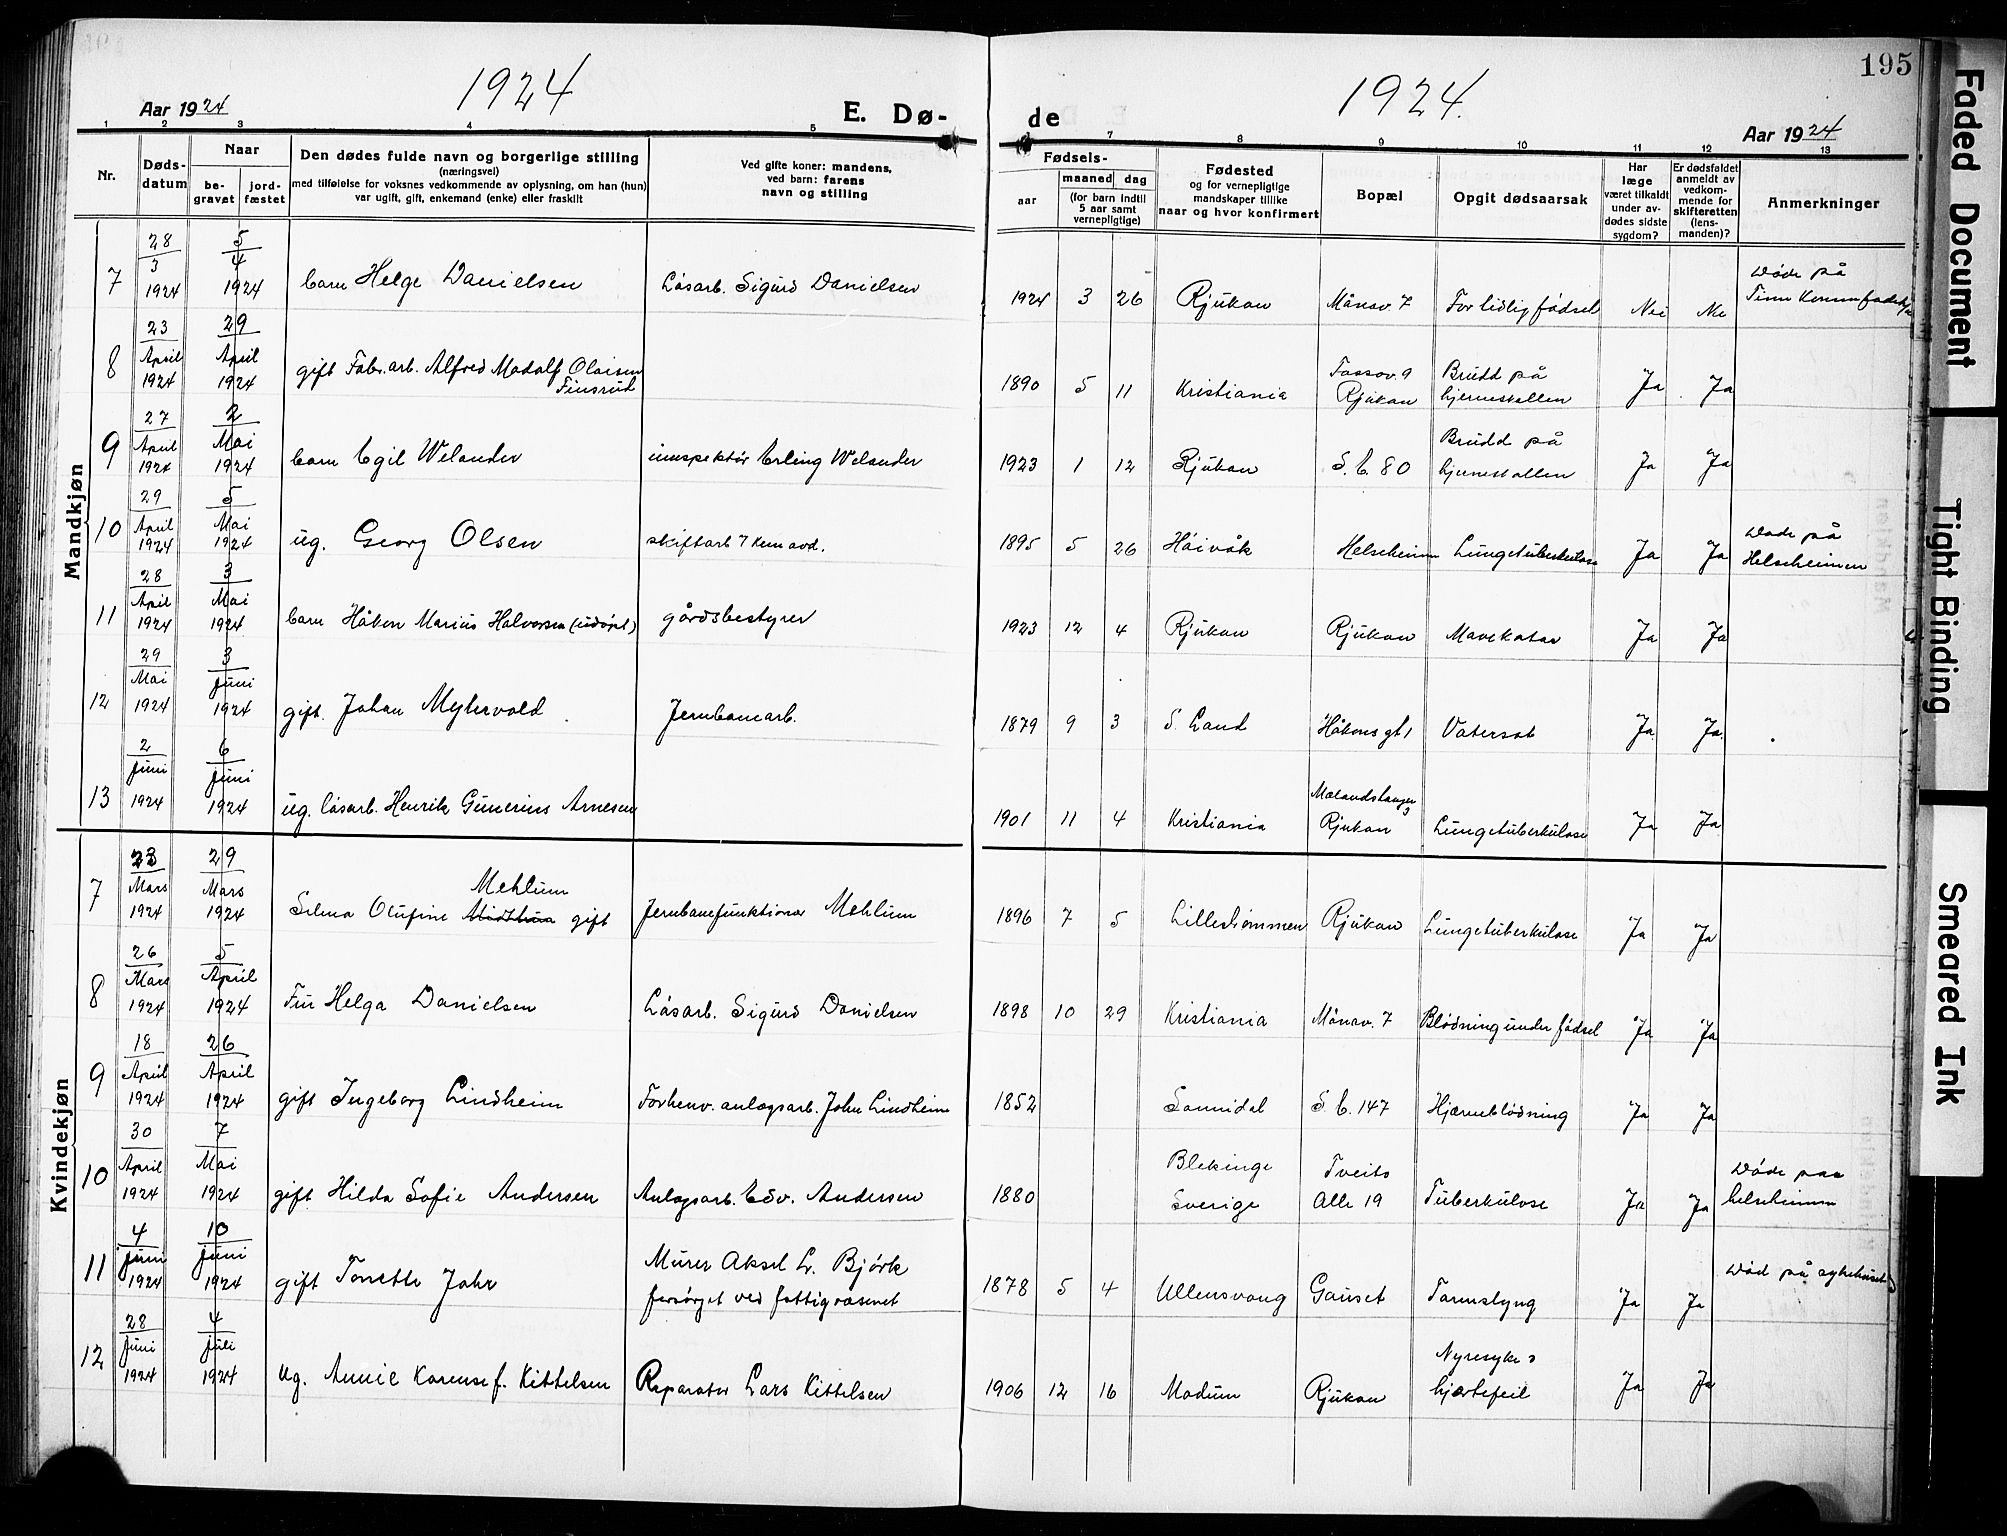 195
1924
1924.
Aar 1924
E. Dø-
de
Aar 1924
1 2 3 4 5 7 8 9 10 11 12 13
Nr.
Døds-
datum
Naar
be-
gravet
jord-
fæstet
Den dødes fulde navn og borgerlige stilling
(næringsvei)
med tilføielse for voksnes vedkommende av oplysning, om han (hun)
var ugift, gift, enkemand (enke) eller fraskilt
Ved gifte koner: mandens,
ved barn: farens
navn og stilling
Fødsels-
aar
maaned dag
(for barn indtil
5 aar samt
vernepligtige)
Fødested
og for vernepligtige
mandskaper tillike
naar og hvor konfirmert
Bopæl
Opgit dødsaarsak
Har
læge
været tilkaldt
under av-
dødes sidste
sygdom?
Er dødsfaldet
anmeldt av
vedkom-
mende for
skifteretten
(lens-
manden)?
Anmerkninger
Mandkjøn
7 28/3 1924 5/4 1924 barn Helge Danielsen Løsarb. Sigurd Danielsen 1924 3 26 Rjukan Månav. 7 For tidlig fødsel Nei Nei Døde på
Tinn Komm.fødehj.
8 23/April 1924 29/April 1924 gift Fabr.arb. Alfred Madolf Olaisen
Finsrud 1890 5 11 Kristiania Fossov. 9
Rjukan Brudd på
hjerneskallen Ja Ja
9 27/April 1924 2/Mai 1924 barn Egil Welander innspektør Erling Welander 1923 1 12 Rjukan S. E. 80 Brudd på
hjerneskallen Ja Ja
10 29/April 1924 5/Mai 1924 ug. Georg Olsen skiftarb 7 Kem avd. 1895 5 26 Høivåk Helseheimen Lungetuberkulose Ja Ja Døde på
Helseheimen
11 28/April 1924 3/Mai 1924 barn Håkon Marius Halvorsen (udøpt) gårdsbestyrer 1923 12 4 Rjukan Rjukan Mavekatar Ja Ja
12 29/Mai 1924 3/Juni 1924 gift. Johan Myhrvold Jernbanearb. 1879 9 3 S. Land Håkons gt 1 Vatersot Ja Ja.
13 2/Juni 1924 6/Juni 1924 ug. løsarb. Henrik Gunerius Arnesen 1901 11 4 Kristiania Mælandshaugen
3
Rjukan Lungetuberkulose Ja Ja
Kvindekjøn
7 23/Mars 1924 29/Mars 1924 Mehlum
Selma Olufine gift Jernbanefunktionær Mehlum 1896 7 5 Lillestrømmen Rjukan Lungetuberkulose Ja Ja
8 26/Mars 1924 5/April 1924 Fru Helga Danielsen Løsarb. Sigurd Danielsen 1898 10 29 Kristiania Månav. 7 Blødning under fødsel Ja Ja
9 18/April 1924 26/April 1924 gift Ingeborg Lindheim Forhenv. anlægsarb. John Lindheim 1852 Sannidal S. E. 147 Hjærneblødning Ja Ja
10 30/April 1924 7/Mai 1924 gift Hilda Sofie Andersen Anlægsarb. Edv. Andersen 1880 Blekinge
Sverige Tveits
Alle 19 Tuberkulose Ja Ja Døde paa
helseheimen
11 4/Juni 1924 10/Juni 1924 gift Tonette Jahr Murer Aksel L. Bjørk
forsørget ved fattigvæsenet 1878 5 4 Ullensvang Gauset Tarmslyng Ja Ja Død på sykehuset
12 28/Juni 1924 4/Juli 1924 ug. Annie Karense f. Kittelsen Reparatør Lars Kittelsen 1906 12 16 Modum Rjukan Nyresyke &
hjertefeil Ja Ja
Faded Document
Tight Binding
Smeared Ink